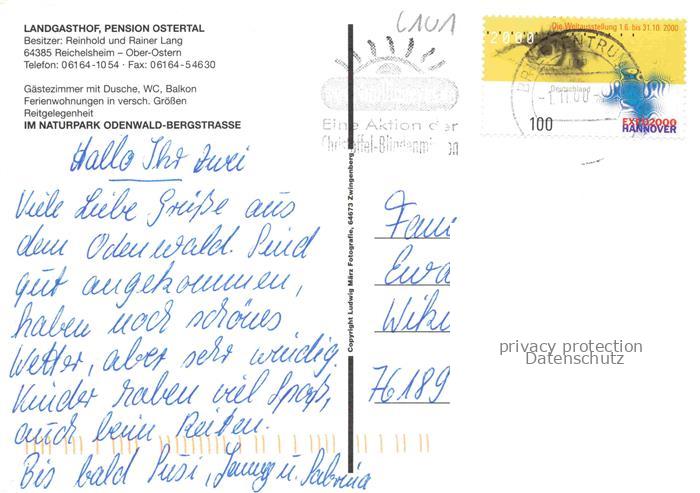 LANDGASTHOF, PENSION OSTERTAL
Besitzer: Reinhold und Rainer Lang
64385 Reichelsheim – Ober-Ostern
Telefon: 06164-1054 · Fax: 06164-54630
Gästezimmer mit Dusche, WC, Balkon
Ferienwohnungen in versch. Größen
Reitgelegenheit
IM NATURPARK ODENWALD-BERGSTRASSE
Hallo Ihr zwei
Viele Liebe Grüße aus
dem Odenwald. Sind
gut angekommen,
haben noch schönes
Wetter, aber sehr windig.
Kinder haben viel Spaß,
auch beim Reiten.
Bis bald Susi, Jenny u. Sabrina
Copyright Ludwig März Fotografie, 64673 Zwingenberg
6101
Eine Aktion der
Christoffel-Blindenmission
Die Weltausstellung 1.6. bis 31.10. 2000
2000
Deutschland
100
EXPO2000
HANNOVER
BRIEFZENTRUM
-1.11.00-
Fami
Ewa
76189
privacy protection
Datenschutz